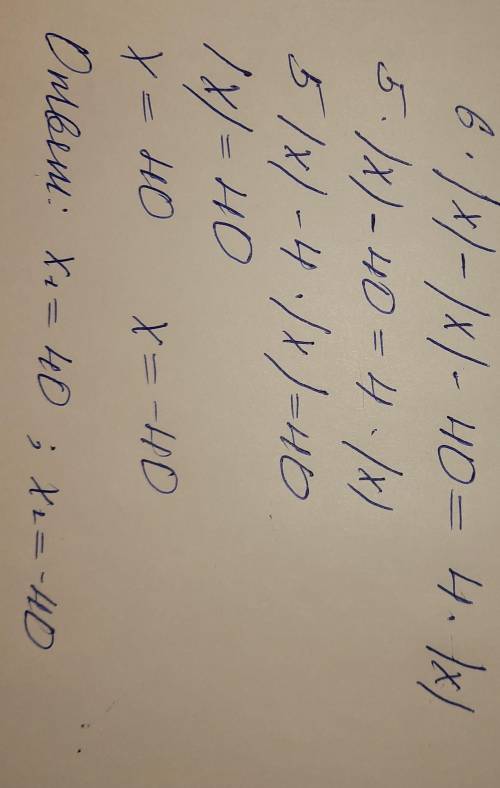 6·|x|-|x|-40=4·|x|
5·|x|-40=4·|x|
5|x|-4·|x|=40
|x|=40
x=40 x=-40
Ответ: x₁=40; x₂=-40